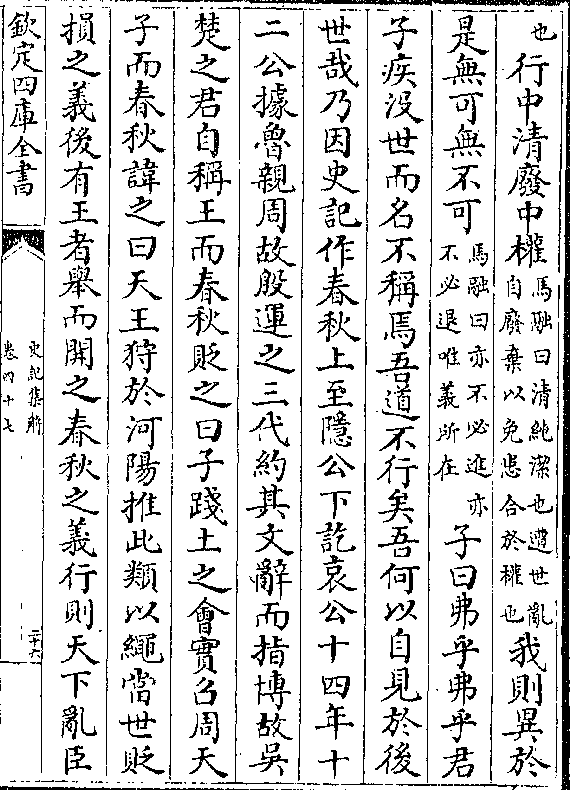 也行中清廢中權馬融曰清純潔也遭世亂自廢棄以免患合於權也我則異於
是無可無不可馬融曰亦不必進亦不必退唯義所在子曰弗乎弗乎君
子疾沒世而名不稱焉吾道不行矣吾何以自見於後
世哉乃因史記作春秋上至隱公下訖哀公十四年十
二公據魯親周故殷運之三代約其文辭而指博故吳
楚之君自稱王而春秋貶之曰子踐土之會實召周天
子而春秋諱之曰天王狩於河陽推此類以繩當世貶
損之義後有王者舉而開之春秋之義行則天下亂臣
欽定四庫全書
史記集解
卷四十七
二十六